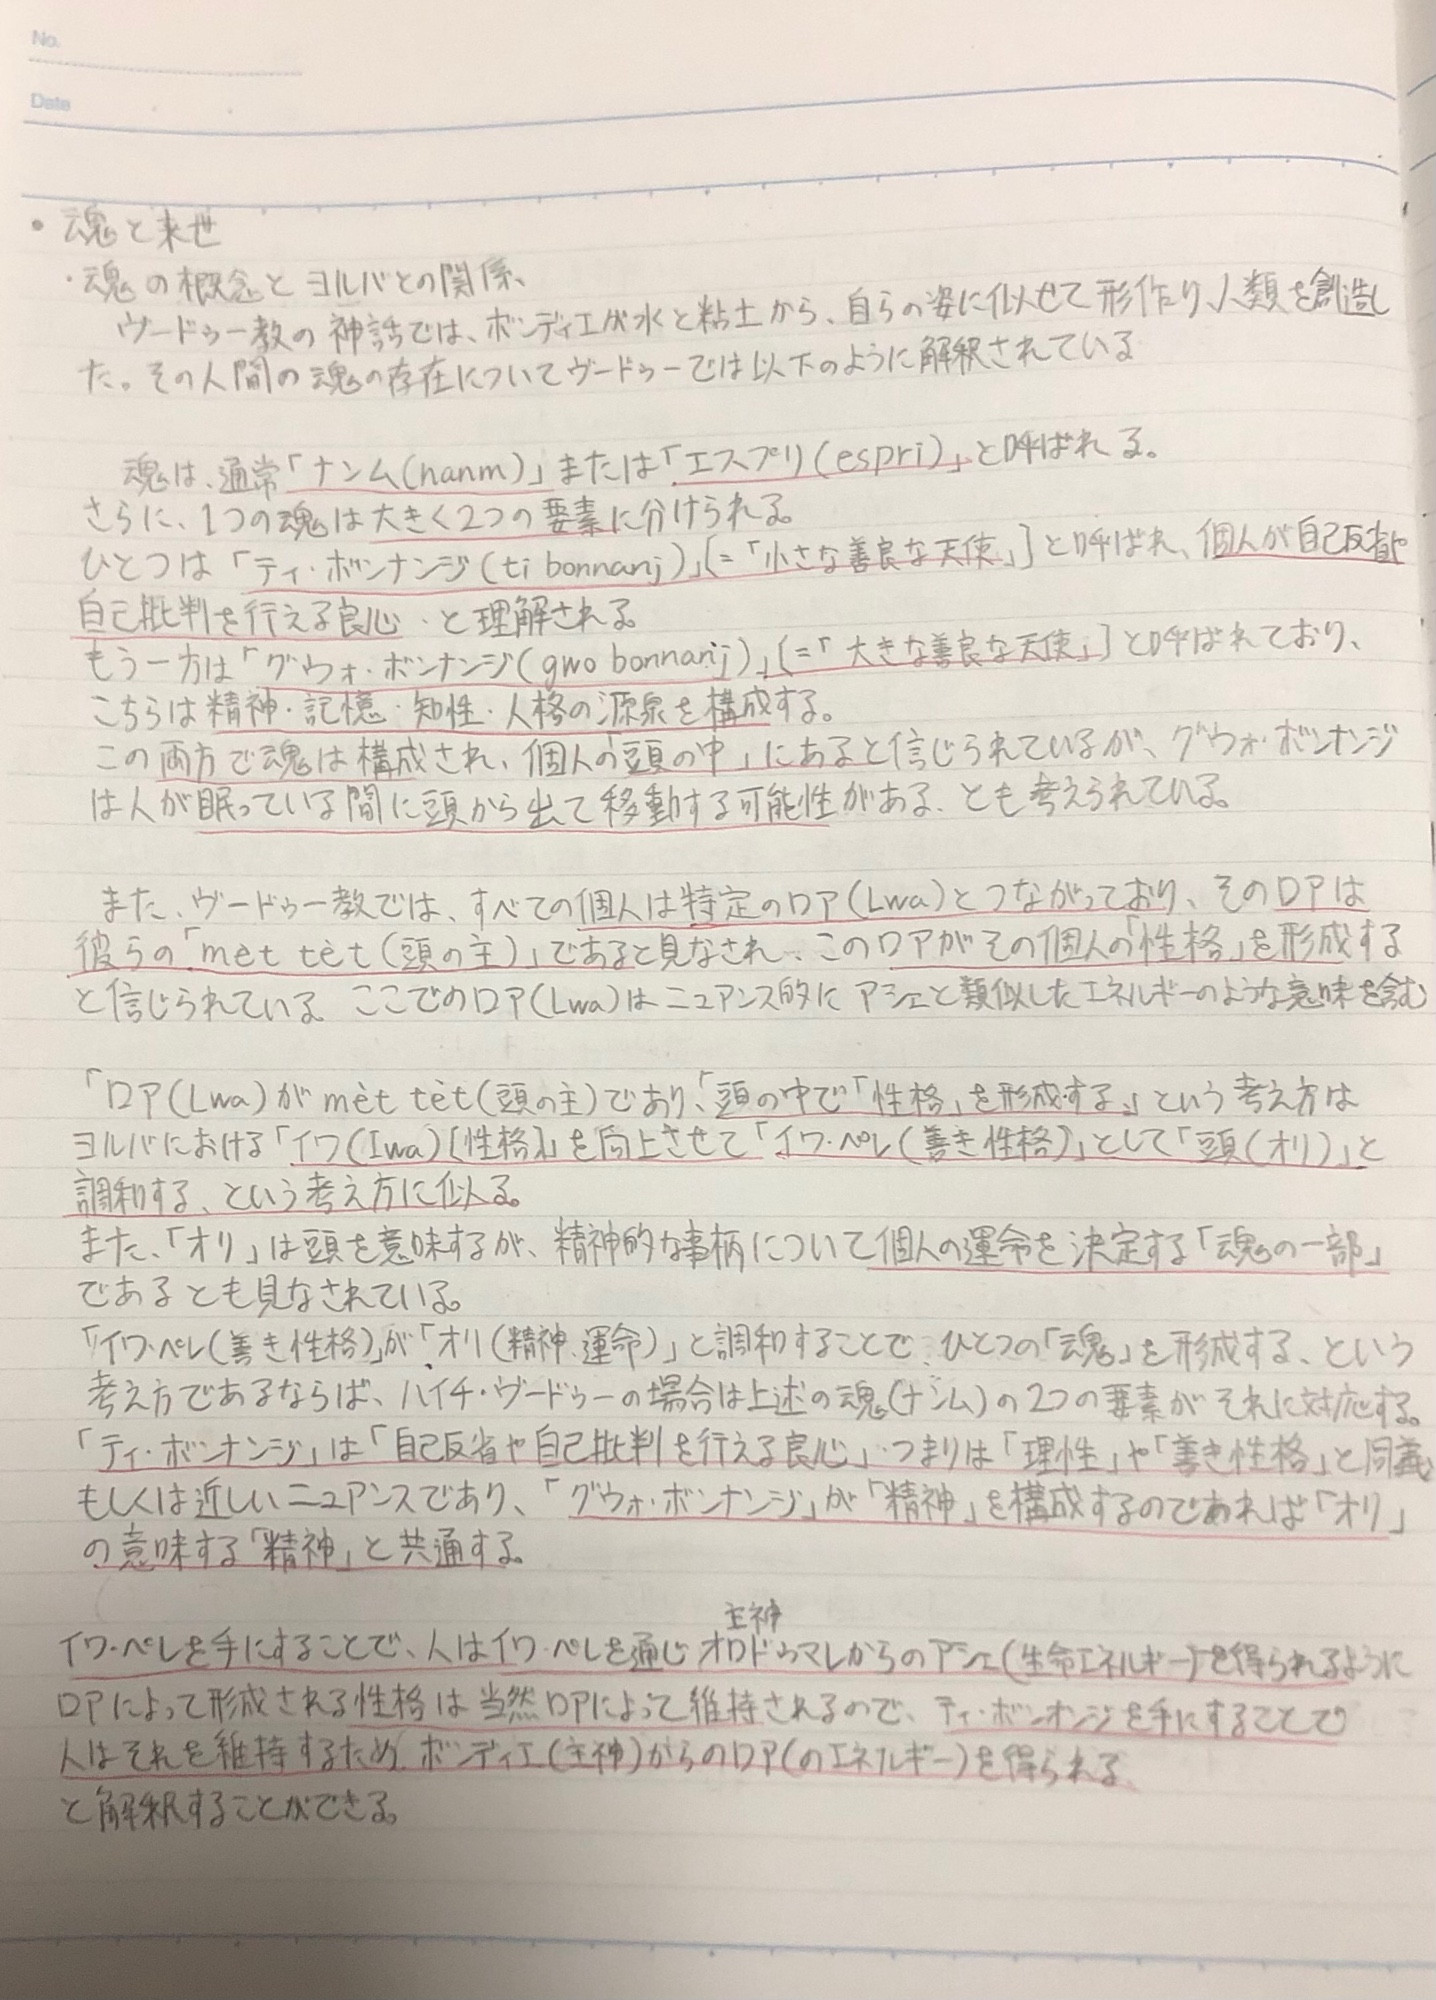 No.
Date
・魂と来世
・魂の概念とヨルバとの関係、
ヴードゥー教の神話では、ボンディエが水と粘土から、自らの姿に似せて形作り、人類を創造し
た。その人間の魂の存在についてヴードゥーでは以下のように解釈されている
魂は、通常「ナンム(nanm)」または「エスプリ(espri)」と呼ばれる。
さらに、1つの魂は大きく2つの要素に分けられる。
ひとつは「ティ・ボンナンジ(ti bonnanj)」[=「小さな善良な天使」]と呼ばれ、個人が自己反省や
自己批判を行える良心、と理解される。
もう一方は「グウォ・ボンナンジ(gwo bonnanj)」[=「大きな善良な天使」]と呼ばれており、
こちらは精神・記憶・知性・人格の源泉を構成する。
この両方で魂は構成され、個人の「頭の中」にあると信じられているが、グウォ・ボンナンジ
は人が眠っている間に頭から出て移動する可能性がある、とも考えられている。
また、ヴードゥー教では、すべての個人は特定のロア(Lwa)とつながっており、そのロアは
彼らの「mèt tèt(頭の主)」であると見なされ、このロアがその個人の「性格」を形成する
と信じられている。ここでのロア(Lwa)はニュアンス的にアシェと類似したエネルギーのような意味を含む
「ロア(Lwa)がmèt tèt(頭の主)であり、「頭の中で「性格」を形成する」という考え方は
ヨルバにおける「イワ(Iwa)[性格]」を向上させて「イワ・ペレ(善き性格)」として「頭(オリ)」と
調和する、という考え方に似る。
また、「オリ」は頭を意味するが、精神的な事柄について個人の運命を決定する「魂の一部」
であるとも見なされている。
「イワ・ペレ(善き性格)」が「オリ(精神、運命)」と調和することで、ひとつの「魂」を形成する、という
考え方であるならば、ハイチ・ヴードゥーの場合は上述の魂(ナンム)の2つの要素がそれに対応する。
「ティ・ボンナンジ」は「自己反省や自己批判を行える良心」、つまりは「理性」や「善き性格」と同義
もしくは近しいニュアンスであり、「グウォ・ボンナンジ」が「精神」を構成するのであれば「オリ」
の意味する「精神」と共通する。
主神
イワ・ペレを手にすることで、人はイワ・ペレを通じオロドゥマレからのアシェ(生命エネルギー)を得られるように
ロアによって形成される性格は当然ロアによって維持されるので、ティ・ボンナンジを手にすることで
人はそれを維持するため、ボンディエ(主神)からのロア(のエネルギー)を得られる、
と解釈することができる。